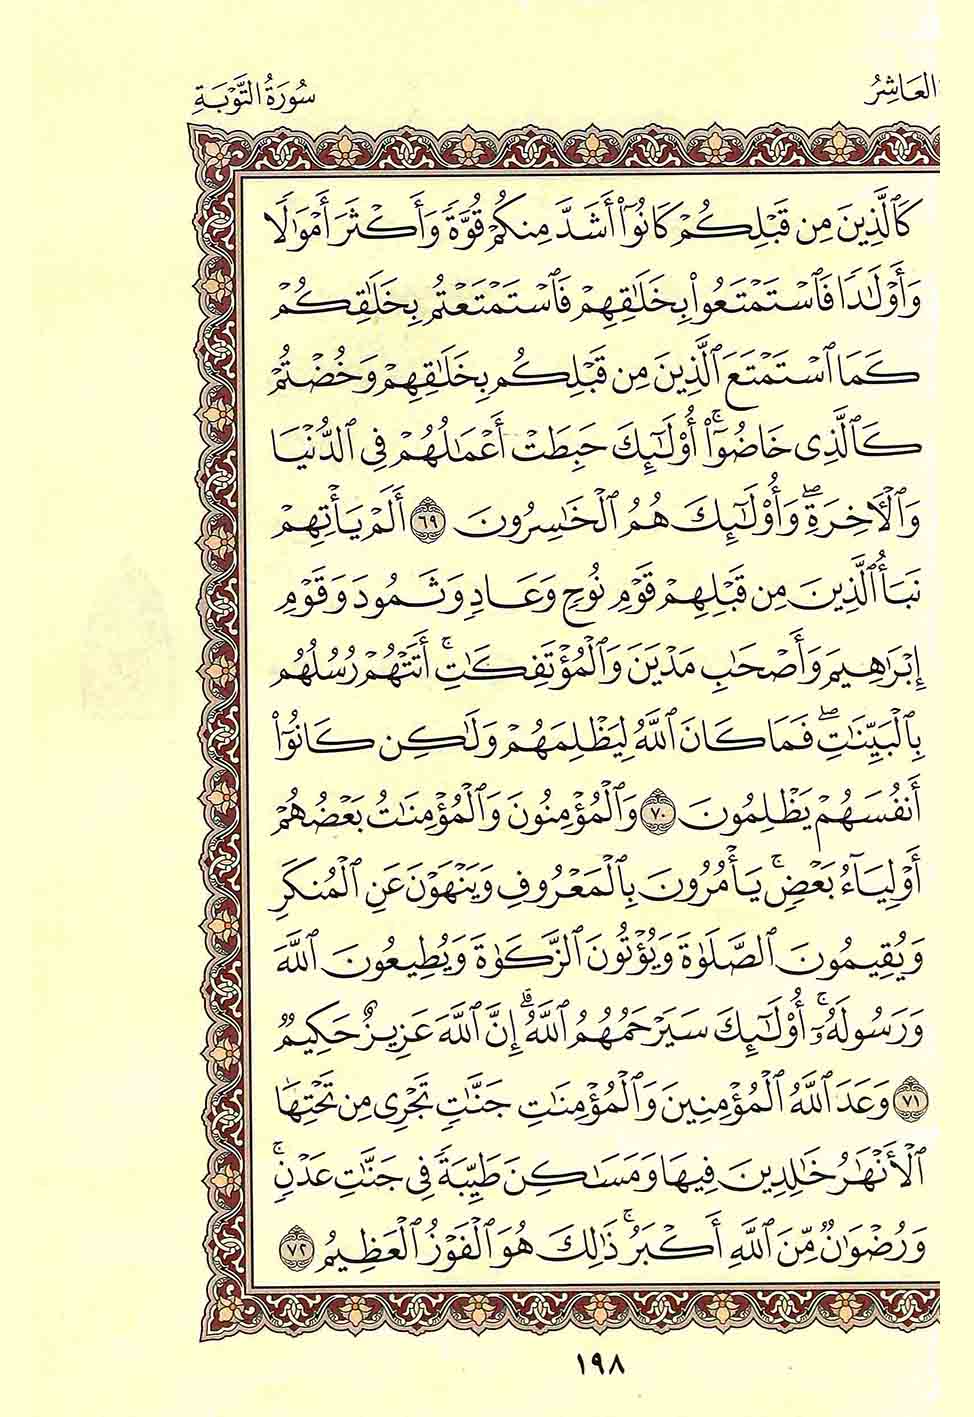 العاشر
سورة التوبة
كَٱلَّذِينَ مِن قَبْلِكُمْ كَانُوٓا۟ أَشَدَّ مِنكُمْ قُوَّةً وَأَكْثَرَ أَمْوَٰلًا
وَأَوْلَٰدًا فَٱسْتَمْتَعُوا۟ بِخَلَٰقِهِمْ فَٱسْتَمْتَعْتُم بِخَلَٰقِكُمْ
كَمَا ٱسْتَمْتَعَ ٱلَّذِينَ مِن قَبْلِكُم بِخَلَٰقِهِمْ وَخُضْتُمْ
كَٱلَّذِى خَاضُوٓا۟ ۚ أُو۟لَٰٓئِكَ حَبِطَتْ أَعْمَٰلُهُمْ فِى ٱلدُّنْيَا
وَٱلْـَٔاخِرَةِ ۖ وَأُو۟لَٰٓئِكَ هُمُ ٱلْخَٰسِرُونَ ٦٩ أَلَمْ يَأْتِهِمْ
نَبَأُ ٱلَّذِينَ مِن قَبْلِهِمْ قَوْمِ نُوحٍ وَعَادٍ وَثَمُودَ وَقَوْمِ
إِبْرَٰهِيمَ وَأَصْحَٰبِ مَدْيَنَ وَٱلْمُؤْتَفِكَٰتِ ۚ أَتَتْهُمْ رُسُلُهُم
بِٱلْبَيِّنَٰتِ ۖ فَمَا كَانَ ٱللَّهُ لِيَظْلِمَهُمْ وَلَٰكِن كَانُوٓا۟
أَنفُسَهُمْ يَظْلِمُونَ ٧٠ وَٱلْمُؤْمِنُونَ وَٱلْمُؤْمِنَٰتُ بَعْضُهُمْ
أَوْلِيَآءُ بَعْضٍ ۚ يَأْمُرُونَ بِٱلْمَعْرُوفِ وَيَنْهَوْنَ عَنِ ٱلْمُنكَرِ
وَيُقِيمُونَ ٱلصَّلَوٰةَ وَيُؤْتُونَ ٱلزَّكَوٰةَ وَيُطِيعُونَ ٱللَّهَ
وَرَسُولَهُۥٓ ۚ أُو۟لَٰٓئِكَ سَيَرْحَمُهُمُ ٱللَّهُ ۗ إِنَّ ٱللَّهَ عَزِيزٌ حَكِيمٌ
٧١ وَعَدَ ٱللَّهُ ٱلْمُؤْمِنِينَ وَٱلْمُؤْمِنَٰتِ جَنَّٰتٍ تَجْرِى مِن تَحْتِهَا
ٱلْأَنْهَٰرُ خَٰلِدِينَ فِيهَا وَمَسَٰكِنَ طَيِّبَةً فِى جَنَّٰتِ عَدْنٍ ۚ
وَرِضْوَٰنٌ مِّنَ ٱللَّهِ أَكْبَرُ ۚ ذَٰلِكَ هُوَ ٱلْفَوْزُ ٱلْعَظِيمُ ٧٢
١٩٨